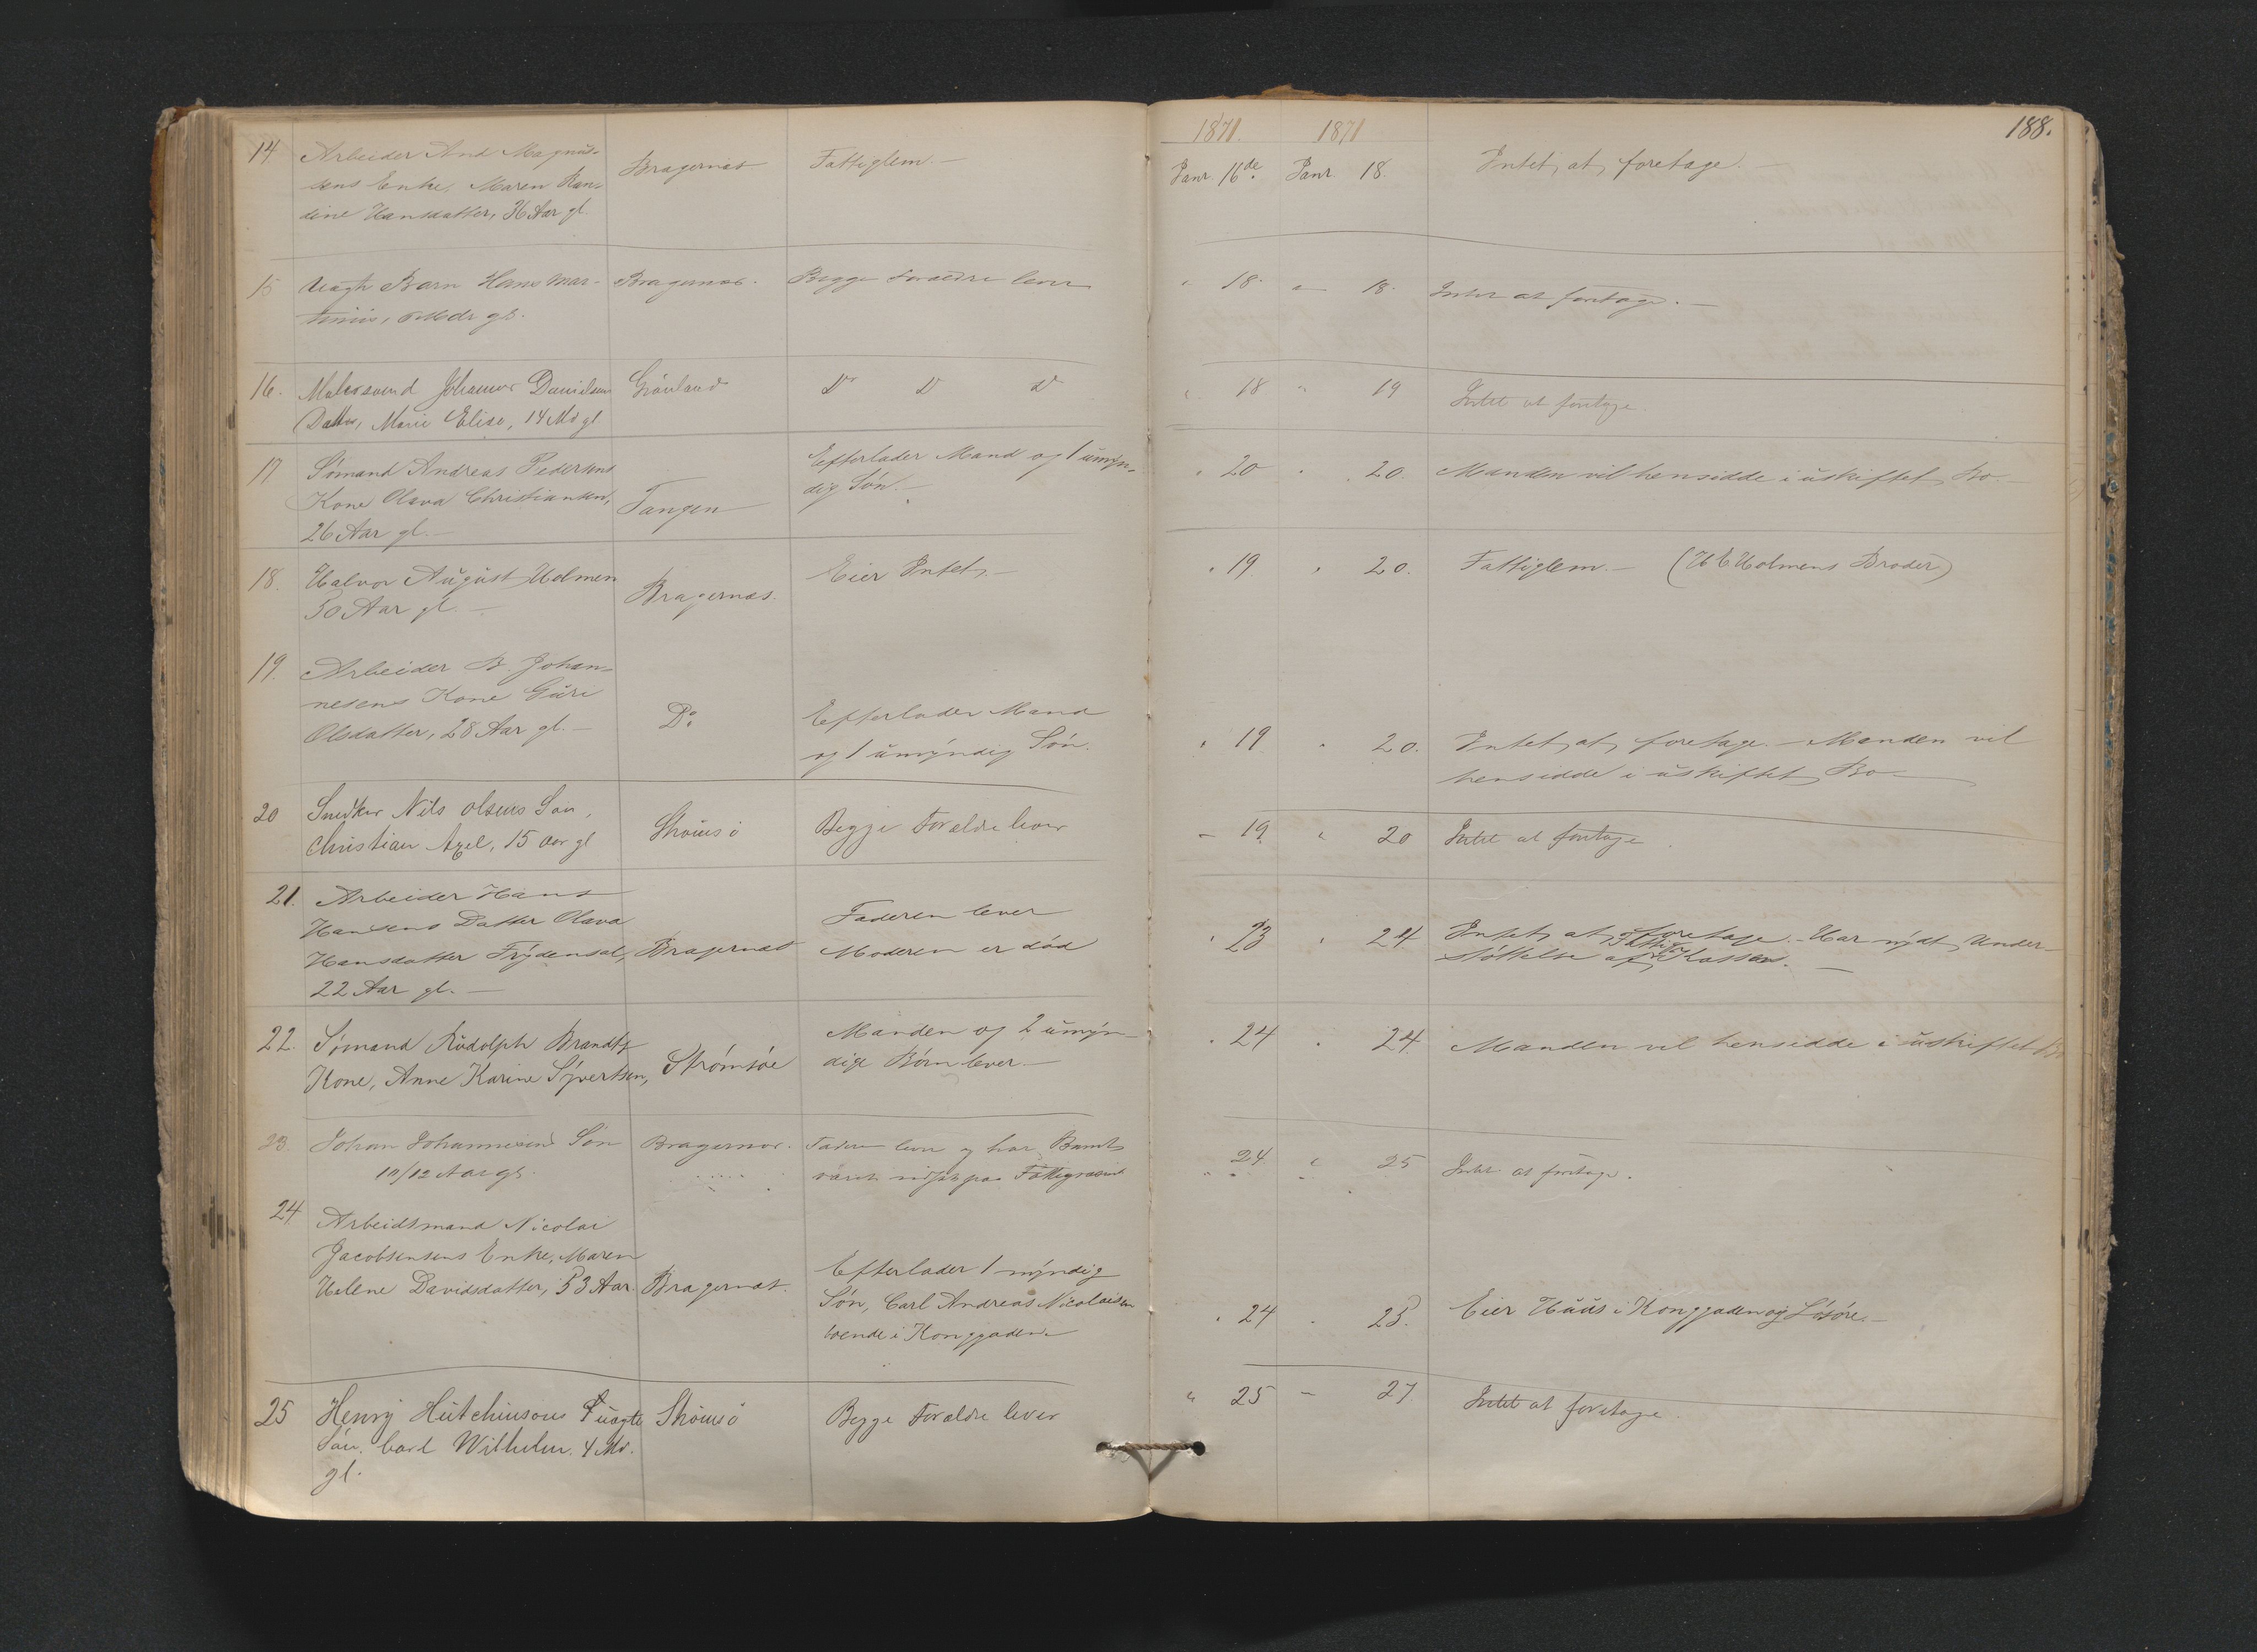 188.
1871. 1871
14 Arbeider And Magnus-
sens Enke, Maren Ran-
dine Hansdatter, 36 Aar gl.
Bragernæs
Fattiglem.—
Janr. 16de. Janr. 18.
Intet at foretage.—
15 Uægte Barn Hans Mar-
tinius, Mdr gl.
Bragernæs.
Begge Forældre lever
" 18. " 18.
Intet at foretage.—
16. Malersvend Johannes Danielsens
Datter, Marie Elise, 14 Md gl
Grønland
Do Do Do
" 18 " 19
Intet at foretage
17 Sømand Andreas Pedersens
Kone Olava Christiansen,
26 Aar gl.—
Tangen
Efterlader Mand og 1 umyn-
dig Søn.—
" 20 " 20.
Manden vil hensidde i uskiftet Bo—
18. Halvor August Holmen
50 Aar gl.—
Bragernæs.
Eier Intet.—
" 19 " 20.
Fattiglem.— (H E Holmens Broder)
19. Arbeider B. Johan-
nesens Kone Guri
Olsdatter, 28 Aar gl.—
Do
Efterlader Mand
og 1 umyndig Søn.
" 19 " 20.
Intet at foretage.— Manden vil
hensidde i uskiftet Bo—
20 Snedker Nils Olsens Søn,
Christian Axel, 15 Aar gl
Strømsø
Begge Forældre lever
" 19. " 20
Intet at foretage
21. Arbeider Hans
Hansens Datter Olava
Hansdatter Frydensal,
22 Aar gl.—
Bragernæs
Faderen lever
Moderen er død
" 23 " 24
Intet at foretage.— Har nydt Under-
støttelse af Fattig Kassen.—
22. Sømand Rudolph Brandts
Kone, Anne Karine Syvertsen,
Strømsøe
Manden og 2 umyn-
dige Børn lever.—
" 24 " 24.
Manden vil hensidde i uskiftet Bo
23. Johan Johannesens Søn
10/12 Aar gl.
Bragernæs.
Faderen lever og har Barnet
været på Fattigvæsenet
" 24. " 25
Intet at foretage.
24. Arbeidsmand Nicolai
Jacobsensens Enke, Maren
Helene Davidsdatter, 53 Aar.
Bragernæs.
Efterlader 1 myndig
Søn, Carl Andreas Nicolaisen
boende i Konggaden.
" 24 " 25.
Eier Huus i Konggaden og Løsøre.—
25 Henry Hutchinsons uægte
Søn. Carl Wilhelm. 4 Md.
gl.
Strømsø
Begge Forældre lever
" 25 " 27
Intet at foretage.